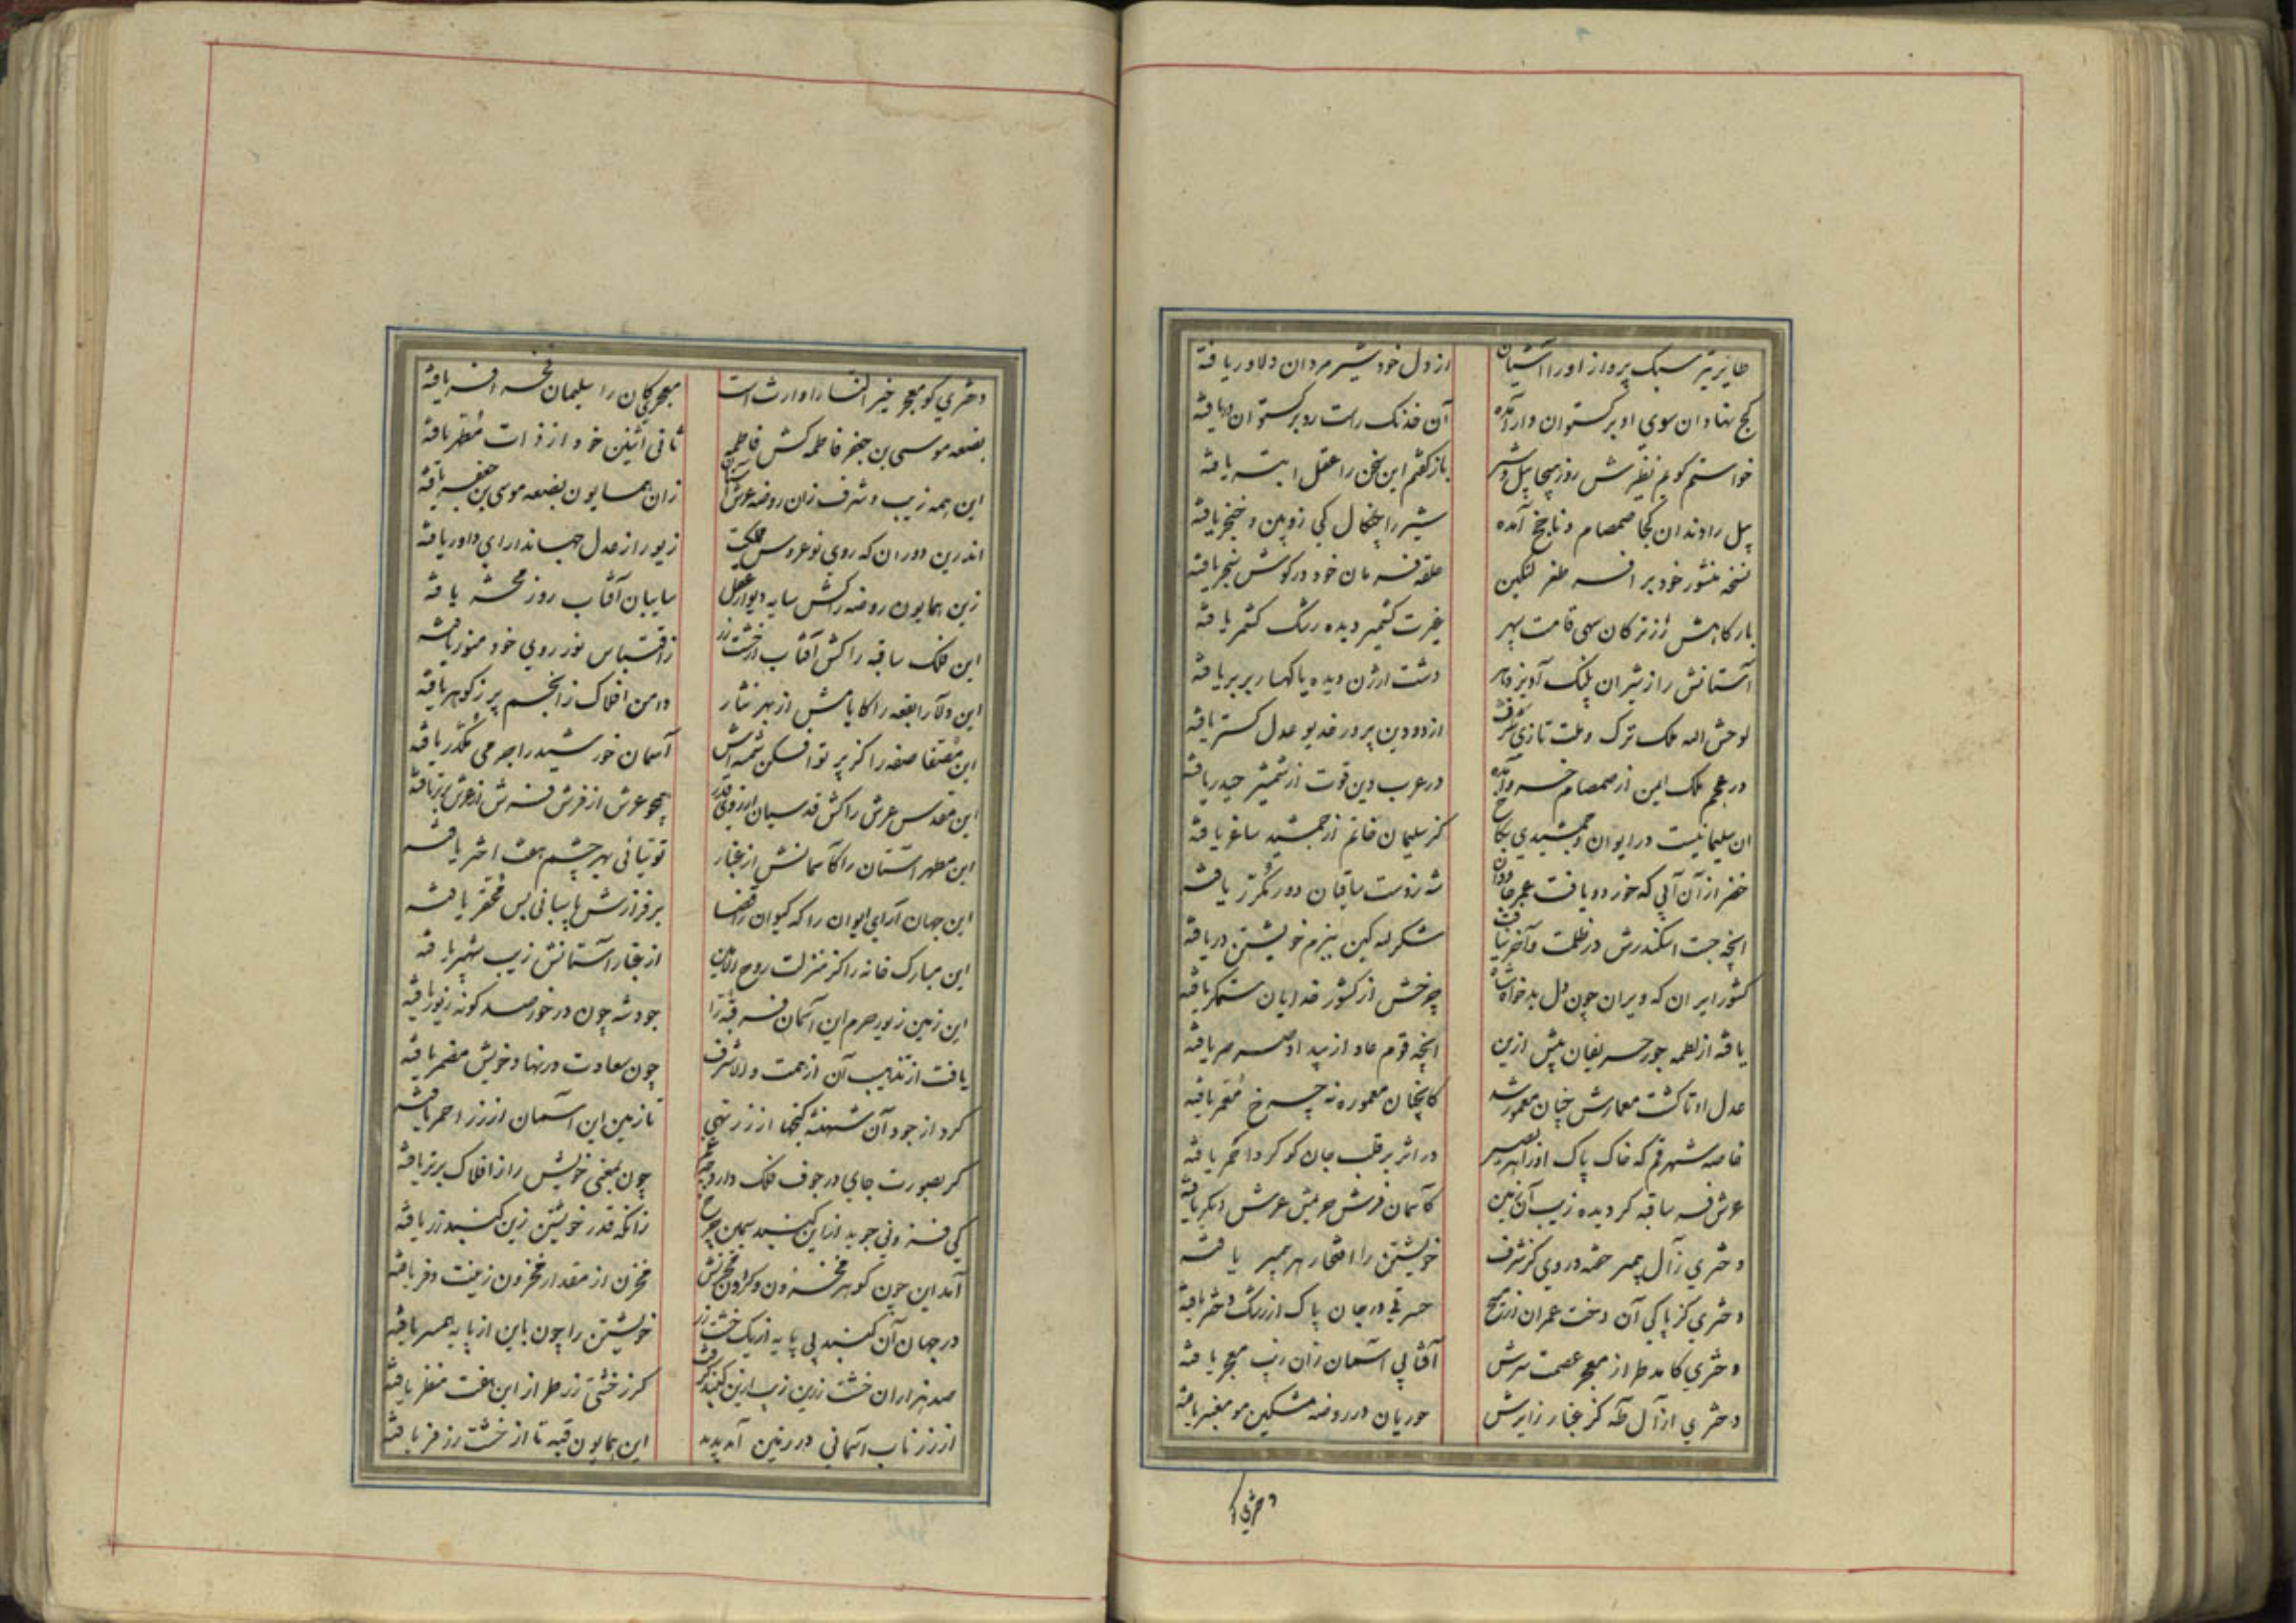 طایر تیر سبک پرواز او را آشیان از دل خود شیر مردان دلاور یافته
کج نهادان سوی او برگستوان وار آمده آن خدنگ راست رو برگستوان در یافته
خواستم گویم نظیرش روز هیجا پیل و شیر باز گفتم این سخن را عقل ابتر یافته
پیل را دندان کجا صمصام و ناچخ آمده شیر را چنگال کی زوبین و خنجر یافته
نسخه منشور خود بر افسر طغرلتکین حلقه فرمان خود در گوش سنجر یافته
بارگاهش را ز ترکان سهی قامت سپهر غیرت کشمیر دیده رشک کشمر یافته
آستانش را ز شیران پلنگ آویز دهر دشت ارژن دیده یا کهسار بربر یافته
لوحش الله ملک ترک و ملت تازی شرف از دو دین پرور خدیو عدل گستر یافته
در عجم ملک ایمن از صمصام خسرو آمده در عرب دین قوت از شمشیر حیدر یافته
ان سلیمانیست در ایوان و جمشیدی بکاخ کز سلیمان خاتم از جمشید ساغر یافته
خضر از آن آبی که خورد و یافت عمر جاودان شه ز دست ساقیان دور مکرر یافته
انچه جست اسکندرش در ظلمت و آخر نیافت شکر لله کین ببزم خویشتن دریافته
کشور ایران که ویران چون دل بدخواه شاه چرخش از کشور خدایان ستمگر یافته
یافته از لطمه جور حریفان پیش ازین انچه قوم عاد از بیداد صرصر یافته
عدل او تا گشت معمارش چنان معمور شد کانچنان معموره نه چرخ مقعر یافته
خاصه شهر قم که خاک پاک او را هر بصیر در اثر بر قلب جان گوگرد احمر یافته
عرش فرسا قبه گردیده زیب آن زمین کآسمان فرش حریمش عرش دیگر یافته
دختری زآل پیمبر خفته در وی کز شرف خویشتن را افتخار هر پیمبر یافته
دختری کز پاکی آن دخت عمران از مسیح حسرتی در جان پاک از رشک دختر یافته
دختری کامد طراز معجر عصمت سرش آفتابی آسمان زان زیب معجر یافته
دختری از آل طه کز غبار زایرش حوریان در روضه مشکین مو معنبر یافته
دختری کو
دختری کو معجر خیر النسا را وارث است معجری کان را سلیمان فخر افسر یافته
بضعه موسی بن جعفر فاطمه کش فاطمه ثانی اثنین خود از ذات مطهر یافته
این همه زیب و شرف زان روضه عرش آستان زان همایون بضعه موسی بن جعفر یافته
اندرین دوران که روی نوعروس مملکت زیور از عدل جهاندارای داور یافته
زین همایون روضه را کش سایه دیوار عقل سایبان آفتاب روز محشر یافته
این فلک سا قبه را کش آفتاب از خشت زر ز اقتباس نور روی خود منور یافته
این دلآرا بقعه را کایامش از بهر نثار دامن افلاک ز انجم پر ز گوهر یافته
این مصفا صفه را کز پرتو افکن شمسه‌اش آسمان خورشید را جرمی مکدر یافته
این مقدس عرش را کش قدسیان از روی قدر همچو عرش از فرش فرش از عرش برتر یافته
این مطهر آستان را کآسمانش از غبار توتیائی بهر چشم هفت اختر یافته
این جهان آرای ایوان را که کیوان را قضا بر فرازش پاسبانی بس محقر یافته
این مبارک خانه را کز منزلت روح الامین از غبار آستانش زیب شهپر یافته
این زمین زیور حرم این آسمان فر قبه را جود شه چون در خور صد گونه زیور یافته
یافت از تذهیب آن از همت والا شرف چون سعادت در نهاد خویش مضمر یافته
کرد از جود آن شهنشه گنجها از زر تهی تا زمین این آسمان از زر احمر یافته
گر بصورت جای در جوف فلک دارد چون بمعنی خویش را ز افلاک برتر یافته
کی فزونی جوید از این گنبد سیمین چرخ زانکه قدر خویشتن زین گنبد زر یافته
آمد این چون گوهر مخزون و گردون مخزنش مخزن از مقدار مخزون زینت و فر یافته
در جهان آن گنبد بی پایه از یک خشت زر خویشتن را چون باین از پایه همسر یافته
صد هزاران خشت زرین زیب ازین گنبد گرفت گر ز خشتی زر طراز این هفت منظر یافته
از زر ناب آسمانی در زمین آمد پدید این همایون قبه تا از خشت زر فر یافته